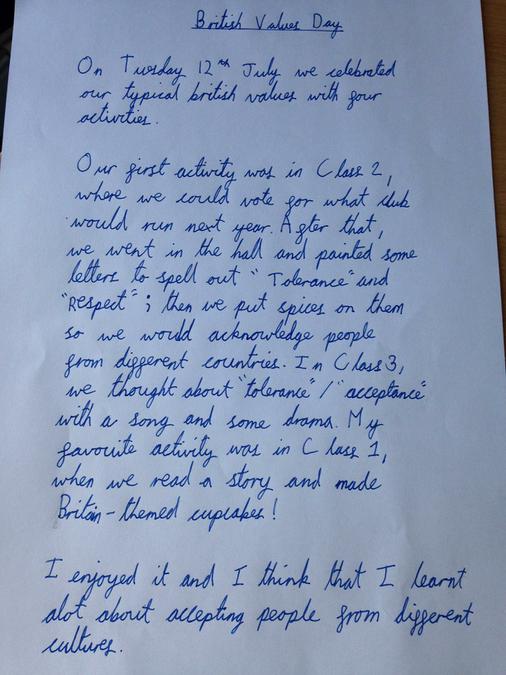 British Values Day
On Tuesday 12th July we celebrated
our typical british values with four
activities.
Our first activity was in Class 2,
where we could vote for what club
would run next year. After that,
we went in the hall and painted some
letters to spell out "Tolerance" and
"Respect"; then we put spices on them
so we would acknowledge people
from different countries. In Class 3,
we thought about "tolerance" / "acceptance"
with a song and some drama. My
favourite activity was in Class 1,
when we read a story and made
Britain-themed cupcakes!
I enjoyed it and I think that I learnt
alot about accepting people from different
cultures.